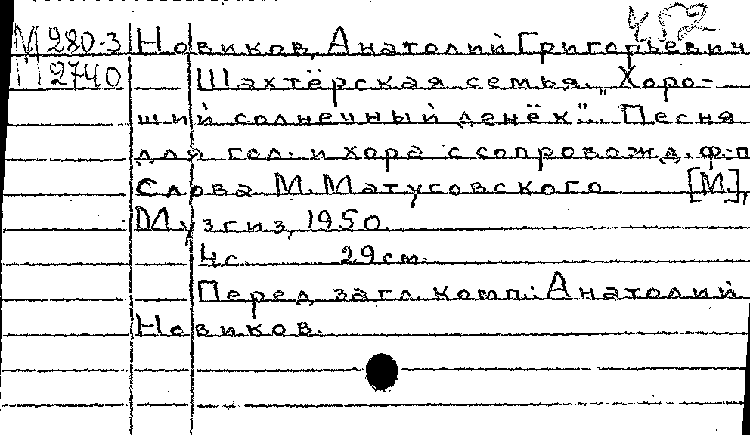 452
М 280-3 Новиков, Анатолий Григорьевич
П 2740 Шахтёрская семья. "Хоро-
ший солнечный денёк". Песня
для гол. и хора с сопровожд. ф-п
Слова М. Матусовского [М.],
Музгиз, 1950.
4 с. 29 см.
Перед загл. комп.: Анатолий
Новиков.